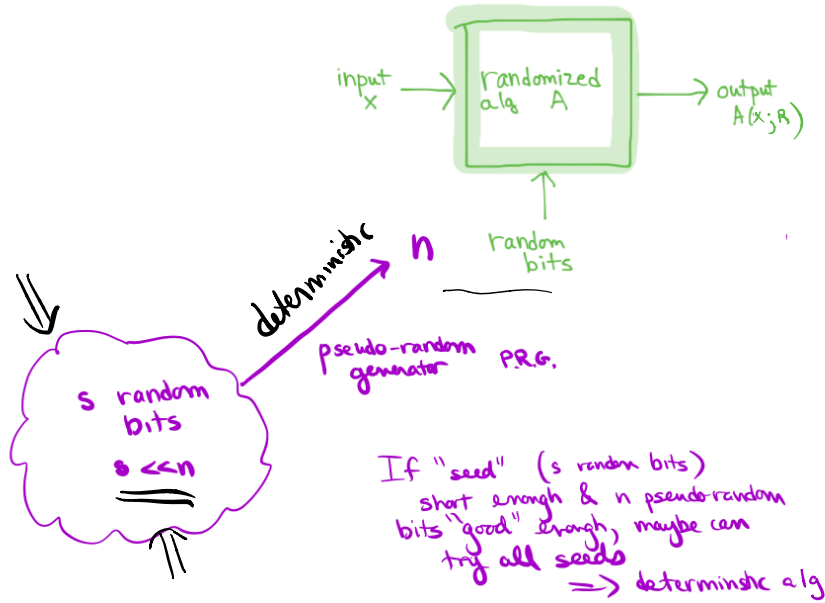 input
x
randomized
alg A
output
A(x;R)
random
bits
n
deterministic
pseudo-random
generator
P.R.G.
s random
bits
s <<n
If "seed" (s random bits)
short enough & n pseudo-random
bits "good" enough, maybe can
try all seeds
=> deterministic alg